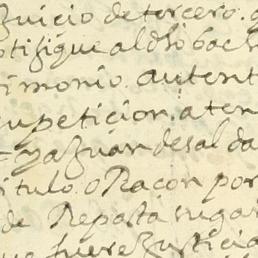 Juicio de tercero.
otifique al dho bac
imonio. autent
u peticion. aten
= ya Juan de sal da
itulo. o Racon por
de Repasta
ue fuere Justicia